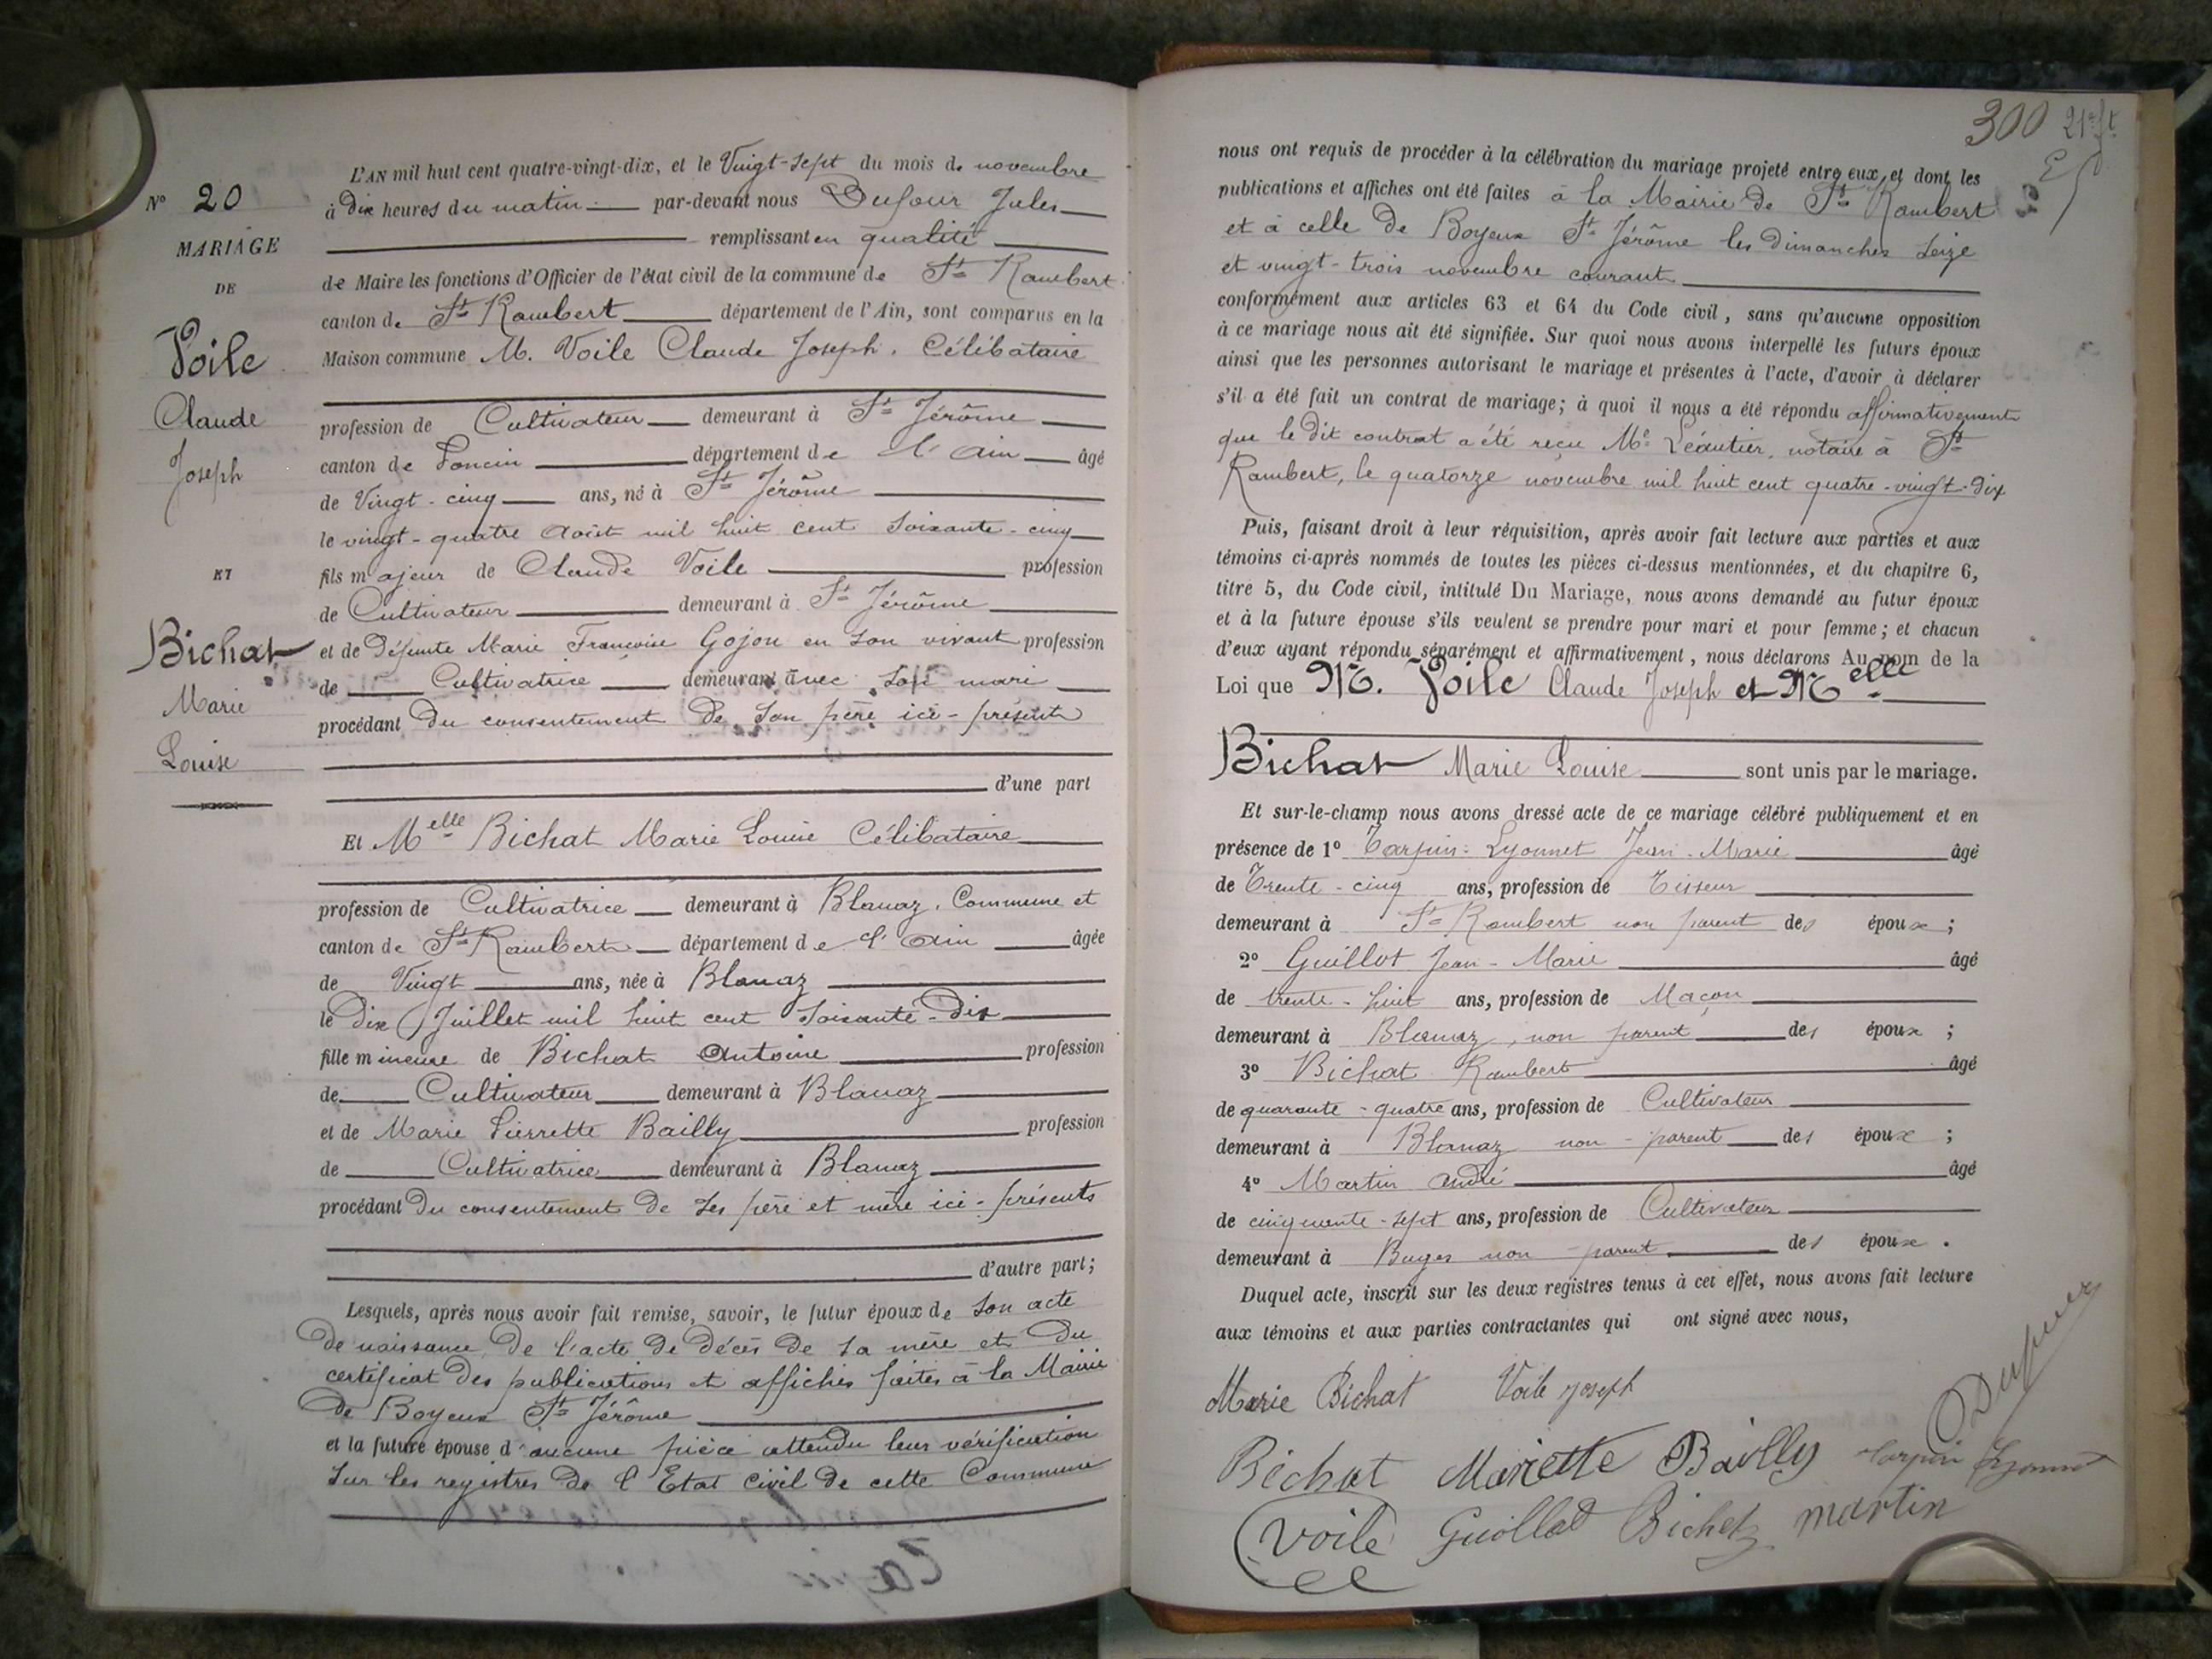 N° 20
MARIAGE
DE
Voile
Claude
Joseph
ET
Bichat
Marie
Louise
L'AN mil huit cent quatre-vingt-dix, et le Vingt-sept du mois de novembre
à dix heures du matin par-devant nous Dufour Jules
remplissant en qualité
de Maire les fonctions d'Officier de l'état civil de la commune de St Rambert
canton de St Rambert département de l'Ain, sont comparus en la
Maison commune M. Voile Claude Joseph, Célibataire
profession de Cultivateur demeurant à St Jérôme
canton de Poncin département de l'Ain âgé
de Vingt-cinq ans, né à St Jérôme
le vingt-quatre Août mil huit cent soixante-cinq
fils majeur de Claude Voile profession
de Cultivateur demeurant à St Jérôme
et de défunte Marie Françoise Gojon en son vivant profession
de Cultivatrice demeurant avec son mari
procédant du consentement de son père ici-présent
d'une part
Et Melle Bichat Marie Louise Célibataire
profession de Cultivatrice demeurant à Blanaz, Commune et
canton de St Rambert département de l'Ain âgée
de Vingt ans, née à Blanaz
le Dix Juillet mil huit cent soixante-Dix
fille mineure de Bichat Antoine profession
de Cultivateur demeurant à Blanaz
et de Marie Pierrette Bailly profession
de Cultivatrice demeurant à Blanaz
procédant du consentement de ses père et mère ici-présents
d'autre part;
Lesquels, après nous avoir fait remise, savoir, le futur époux de son acte
de naissance, de l'acte de décès de sa mère et du
certificat des publications et affiches faites à la Mairie
de Boyeux St Jérôme
et la future épouse d'aucune pièce attendu leur vérification
sur les registres de l'Etat civil de cette Commune
300
nous ont requis de procéder à la célébration du mariage projeté entre eux, et dont les
publications et affiches ont été faites à la Mairie de St Rambert
et à celle de Boyeux St Jérôme les dimanches seize
et vingt-trois novembre courant
conformément aux articles 63 et 64 du Code civil, sans qu'aucune opposition
à ce mariage nous ait été signifiée. Sur quoi nous avons interpellé les futurs époux
ainsi que les personnes autorisant le mariage et présentes à l'acte, d'avoir à déclarer
s'il a été fait un contrat de mariage; à quoi il nous a été répondu affirmativement
que le dit contrat a été reçu Me Léautier, notaire à St
Rambert, le quatorze novembre mil huit cent quatre-vingt-dix
Puis, faisant droit à leur réquisition, après avoir fait lecture aux parties et aux
témoins ci-après nommés de toutes les pièces ci-dessus mentionnées, et du chapitre 6,
titre 5, du Code civil, intitulé Du Mariage, nous avons demandé au futur époux
et à la future épouse s'ils veulent se prendre pour mari et pour femme; et chacun
d'eux ayant répondu séparément et affirmativement, nous déclarons Au nom de la
Loi que M. Voile Claude Joseph et Melle
Bichat Marie Louise sont unis par le mariage.
Et sur-le-champ nous avons dressé acte de ce mariage célébré publiquement et en
présence de 1° Tarpin-Lyonnet Jean-Marie âgé
de Trente-cinq ans, profession de Tisseur
demeurant à St Rambert non parent des époux;
2° Guillot Jean-Marie âgé
de trente-huit ans, profession de Maçon
demeurant à Blanaz, non parent des époux;
3° Bichat Rambert âgé
de quarante-quatre ans, profession de Cultivateur
demeurant à Blanaz non-parent des époux;
4° Martin André âgé
de cinquante-sept ans, profession de Cultivateur
demeurant à Buges non-parent des époux.
Duquel acte, inscrit sur les deux registres tenus à cet effet, nous avons fait lecture
aux témoins et aux parties contractantes qui ont signé avec nous,
Marie Bichat Voile Joseph
Bichat Mariette Bailly tarpin Lyonnet
Voile Guillot Bichat martin